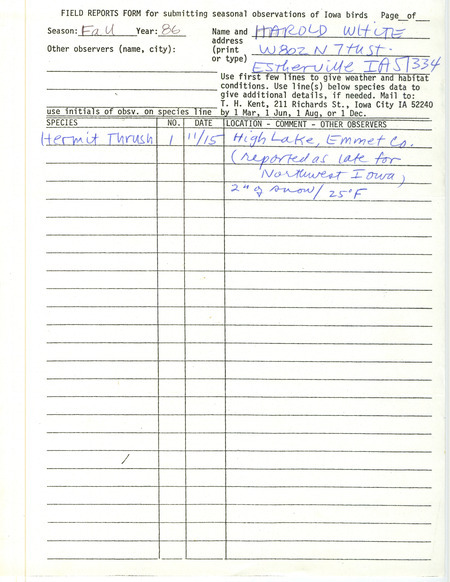 FIELD REPORTS FORM for submitting seasonal observations of Iowa birds Page__of__
Season: Fall Year: 86 Name and HAROLD WHITE
address
Other observers (name, city): (print W802 N 7th St.
or type) Estherville IA 51334
Use first few lines to give weather and habitat
conditions. Use line(s) below species data to
give additional details, if needed. Mail to:
T. H. Kent, 211 Richards St., Iowa City IA 52240
use initials of obsv. on species line by 1 Mar, 1 Jun, 1 Aug, or 1 Dec.
SPECIES NO. DATE LOCATION - COMMENT - OTHER OBSERVERS
Hermit Thrush 1 11/15 High Lake, Emmet Co.
(reported as late for
Northwest Iowa)
2" of snow / 25°F